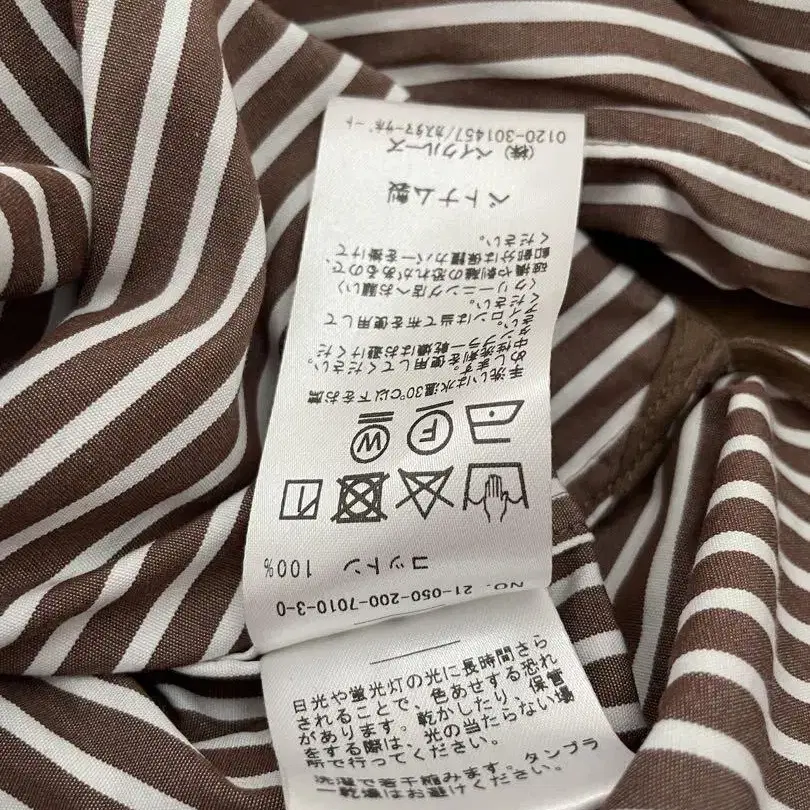 NO. 21-050-200-7010-3-0
コットン 100%
手洗いは水温30℃以下をお薦
めします。
中性洗剤を使用してください。
タンブラー乾燥はお避けくだ
さい。
アイロンは当て布を使用して
ください。
〈クリーニング店へお願い〉
破損や剥離の恐れがあるので、
釦部分は保護カバーを掛けて
ください。
ベトナム製
(株)ベイクルーズ
0120-301457/カスタマーサポート
日光や蛍光灯の光に長時間さら
されることで、色あせする恐れ
があります。乾かしたり、保管
をする際は、光の当たらない場
所で行ってください。
洗濯で若干縮みます。タンブラ
ー乾燥はお避けください